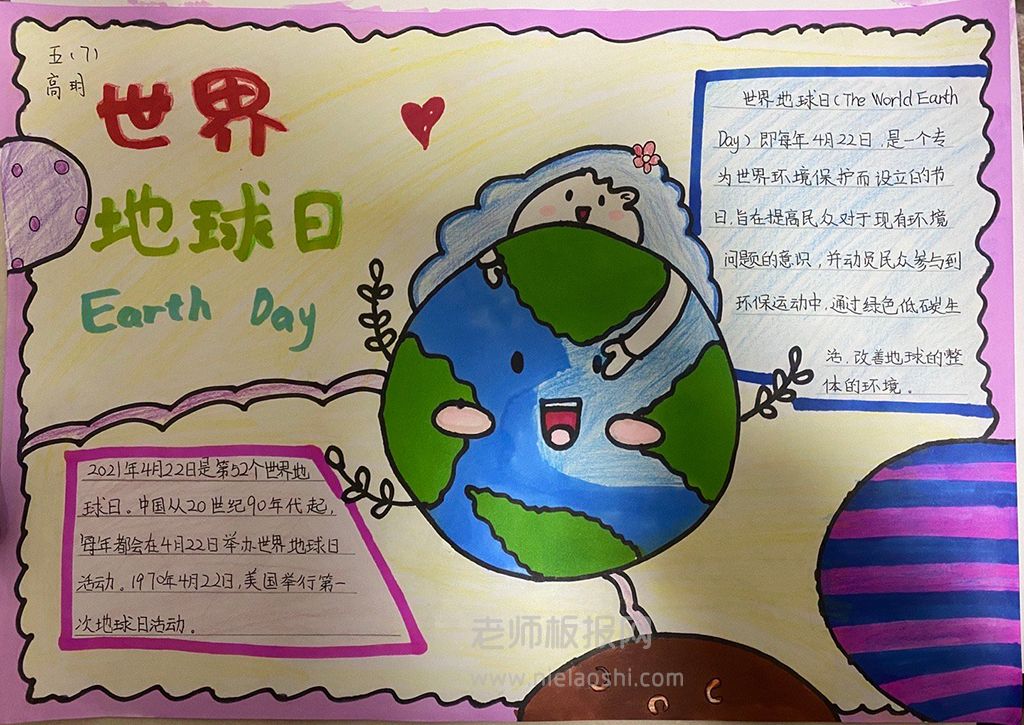 五(7)
高玥
世界
地球日
Earth Day
世界地球日(The World Earth
Day)即每年4月22日,是一个专
为世界环境保护而设立的节
日,旨在提高民众对于现有环境
问题的意识,并动员民众参与到
环保运动中,通过绿色低碳生
活,改善地球的整
体的环境。
2021年4月22日是第52个世界地
球日。中国从20世纪90年代起,
每年都会在4月22日举办世界地球日
活动。1970年4月22日,美国举行第一
次地球日活动。
老师板报网
www.nielaoshi.com